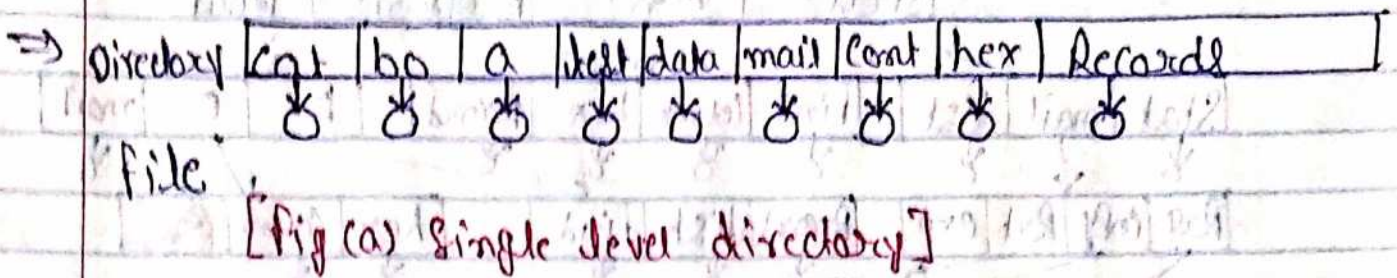 ⇒ Directory | cat | bo | a | test | data | mail | cont | hex | Records |
file
[fig (a) Single level directory]